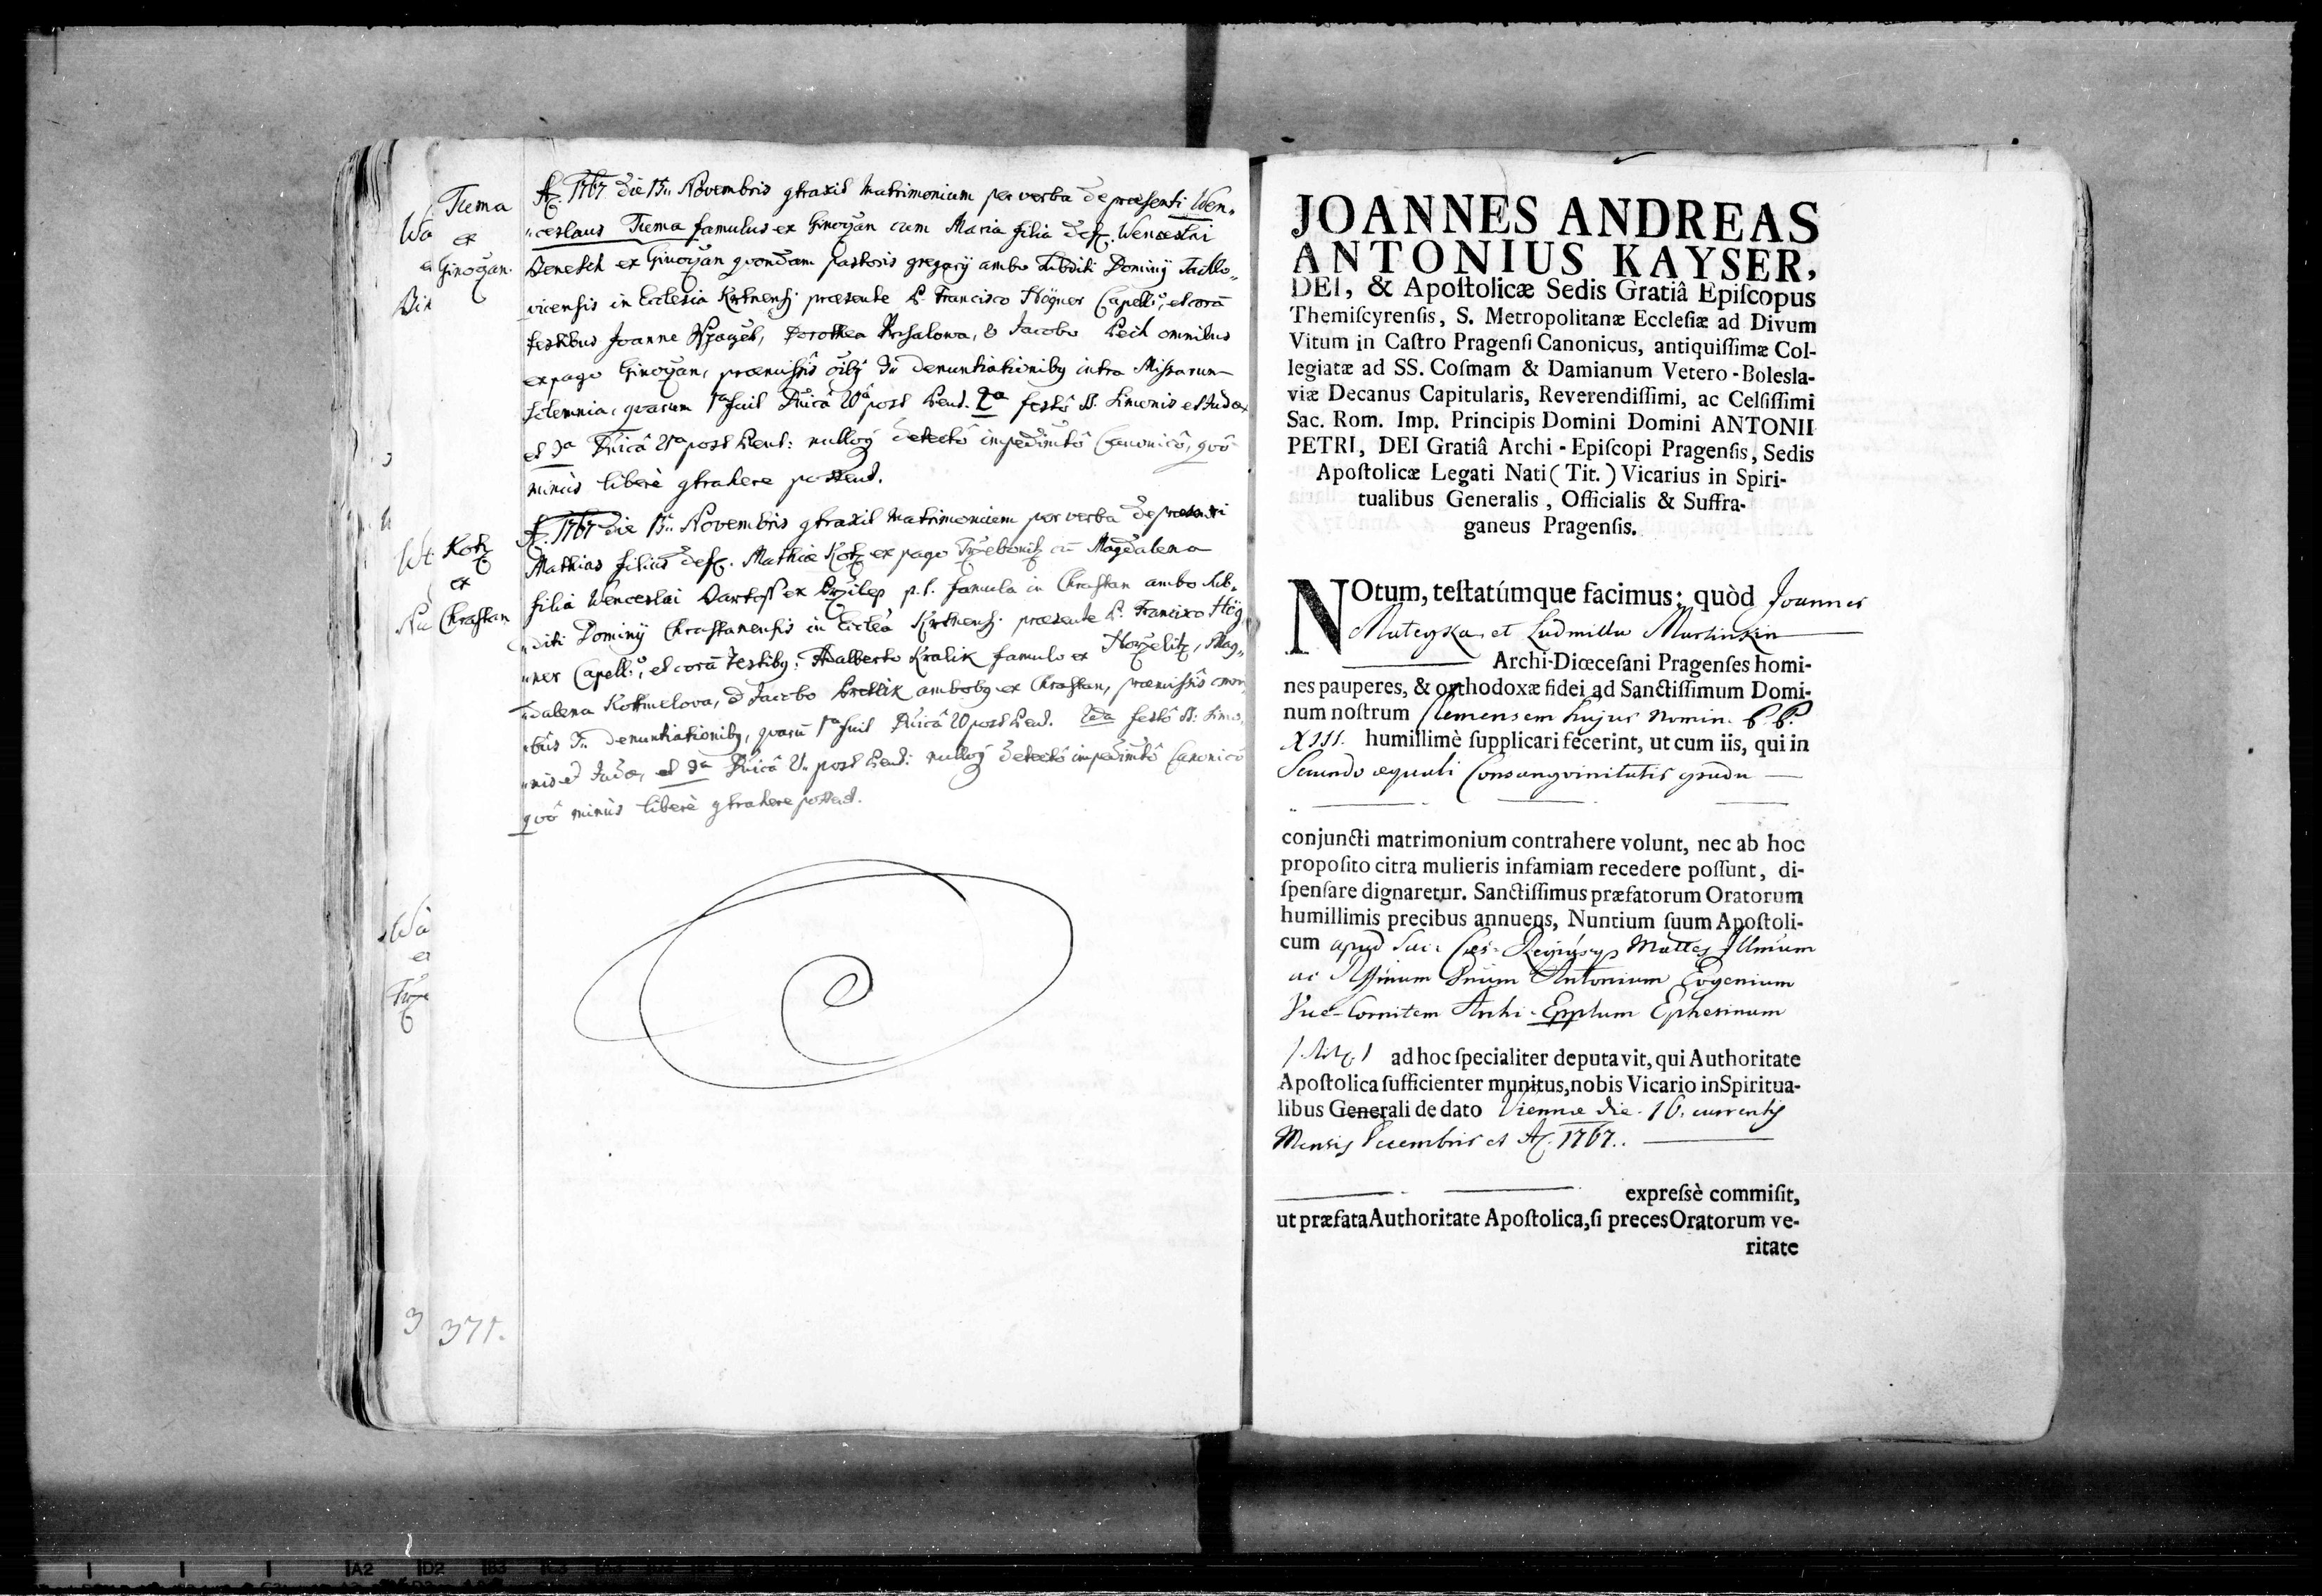 Tuma
ex
Ginoczan.
A. 1767 die 15. Novembris gtraxit Matrimonium per verba de praesenti Wen„
„ceslaus Tuma famulus ex Ginoczan cum Maria filia def. Wenceslai
Benesch ex Ginoczan quondam pastoris gregarij ambo Subditi Dominij Tachlo„
vicensis in Ecclesia praesente P. Francisco Capell., et corã
testibus Joanne Dorothea & Jacobo omnibus
ex pago Ginoczan, praemissis 3. denuntiationibg intra Missarum
Solemnia, quarum 1a fuit post Pent. 2a festô SS. Simonis et Judae
et 3a post Pent: detectô Canonicô, quô
minùs liberè gtrahere possent.
Kotz
ex
Chrastan
A. 1767 die 15. Novembris gtraxit Matrimonium per verba de praesenti
Mathias filius def. Mathiae Kotz ex pago Trzebonitz cũ Magdalena
filia Wenceslai ex p.t. famula in Chrastan ambo Sub„
„diti Dominij Chrastanensis in praesente P. Francisco Hög„
„ner Capell., et corã Testibg: Adalberto Kralik famulo ex Horzelitz, Mag„
„dalena & Jacobo ambobg ex Chrastan, praemissis omni„
„bus 3. denuntiationibg, quarũ 1a fuit post Pent. 2da festô SS: Simo„
„nis et Judae, et 3a post Pent: detectô Canonicô
quô minùs liberè gtrahere possent.
371.
JOANNES ANDREAS
ANTONIUS KAYSER,
DEI, & Apoſtolicæ Sedis Gratiâ Epiſcopus
Themiſcyrenſis, S. Metropolitanæ Eccleſiæ ad Divum
Vitum in Caſtro Pragenſi Canonicus, antiquiſſimæ Col-
legiatæ ad SS. Coſmam & Damianum Vetero-Boleſla-
viæ Decanus Capitularis, Reverendiſſimi, ac Celſiſſimi
Sac. Rom. Imp. Principis Domini Domini ANTONII
PETRI, DEI Gratiâ Archi-Epiſcopi Pragenſis, Sedis
Apoſtolicæ Legati Nati (Tit.) Vicarius in Spiri-
tualibus Generalis, Officialis & Suffra-
ganeus Pragenſis.
NOtum, teſtatúmque facimus; quòd Joannes
Mateyska et Ludmilla Martinkin
Archi-Diœceſani Pragenſes homi-
nes pauperes, & orthodoxæ fidei ad Sanctiſſimum Domi-
num noſtrum Clemensem hujus Nomin. P.P.
XIII. humillimè ſupplicari fecerint, ut cum iis, qui in
Secundo aequali Consangvinitatis gradu
conjuncti matrimonium contrahere volunt, nec ab hoc
propoſito citra mulieris infamiam recedere poſſunt, di-
ſpenſare dignaretur. Sanctiſſimus præfatorum Oratorum
humillimis precibus annuens, Nuntium ſuum Apoſtoli-
cum apud Sac. Caes. Mattes Illmum
ac Antonium Eugenium
Vice-Comitem Archi-Epptum Ephesinum
/Titz/ ad hoc ſpecialiter deputavit, qui Authoritate
Apoſtolica ſufficienter munitus, nobis Vicario in Spiritua-
libus Generali de dato Viennae die 16. currentis
Mensis Decembris et A. 1767.
expreſsè commiſit,
ut præfata Authoritate Apoſtolica, ſi preces Oratorum ve-
ritate